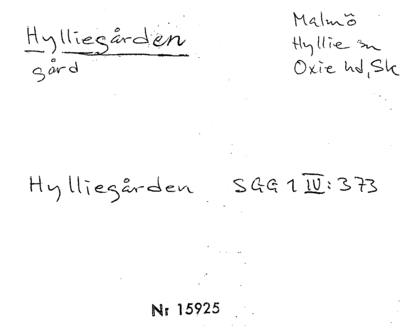 Hylliegården
gård
Malmö
Hyllie sn
Oxie hd, Sk
Hylliegården SGG 1 IV: 373
Nr 15925